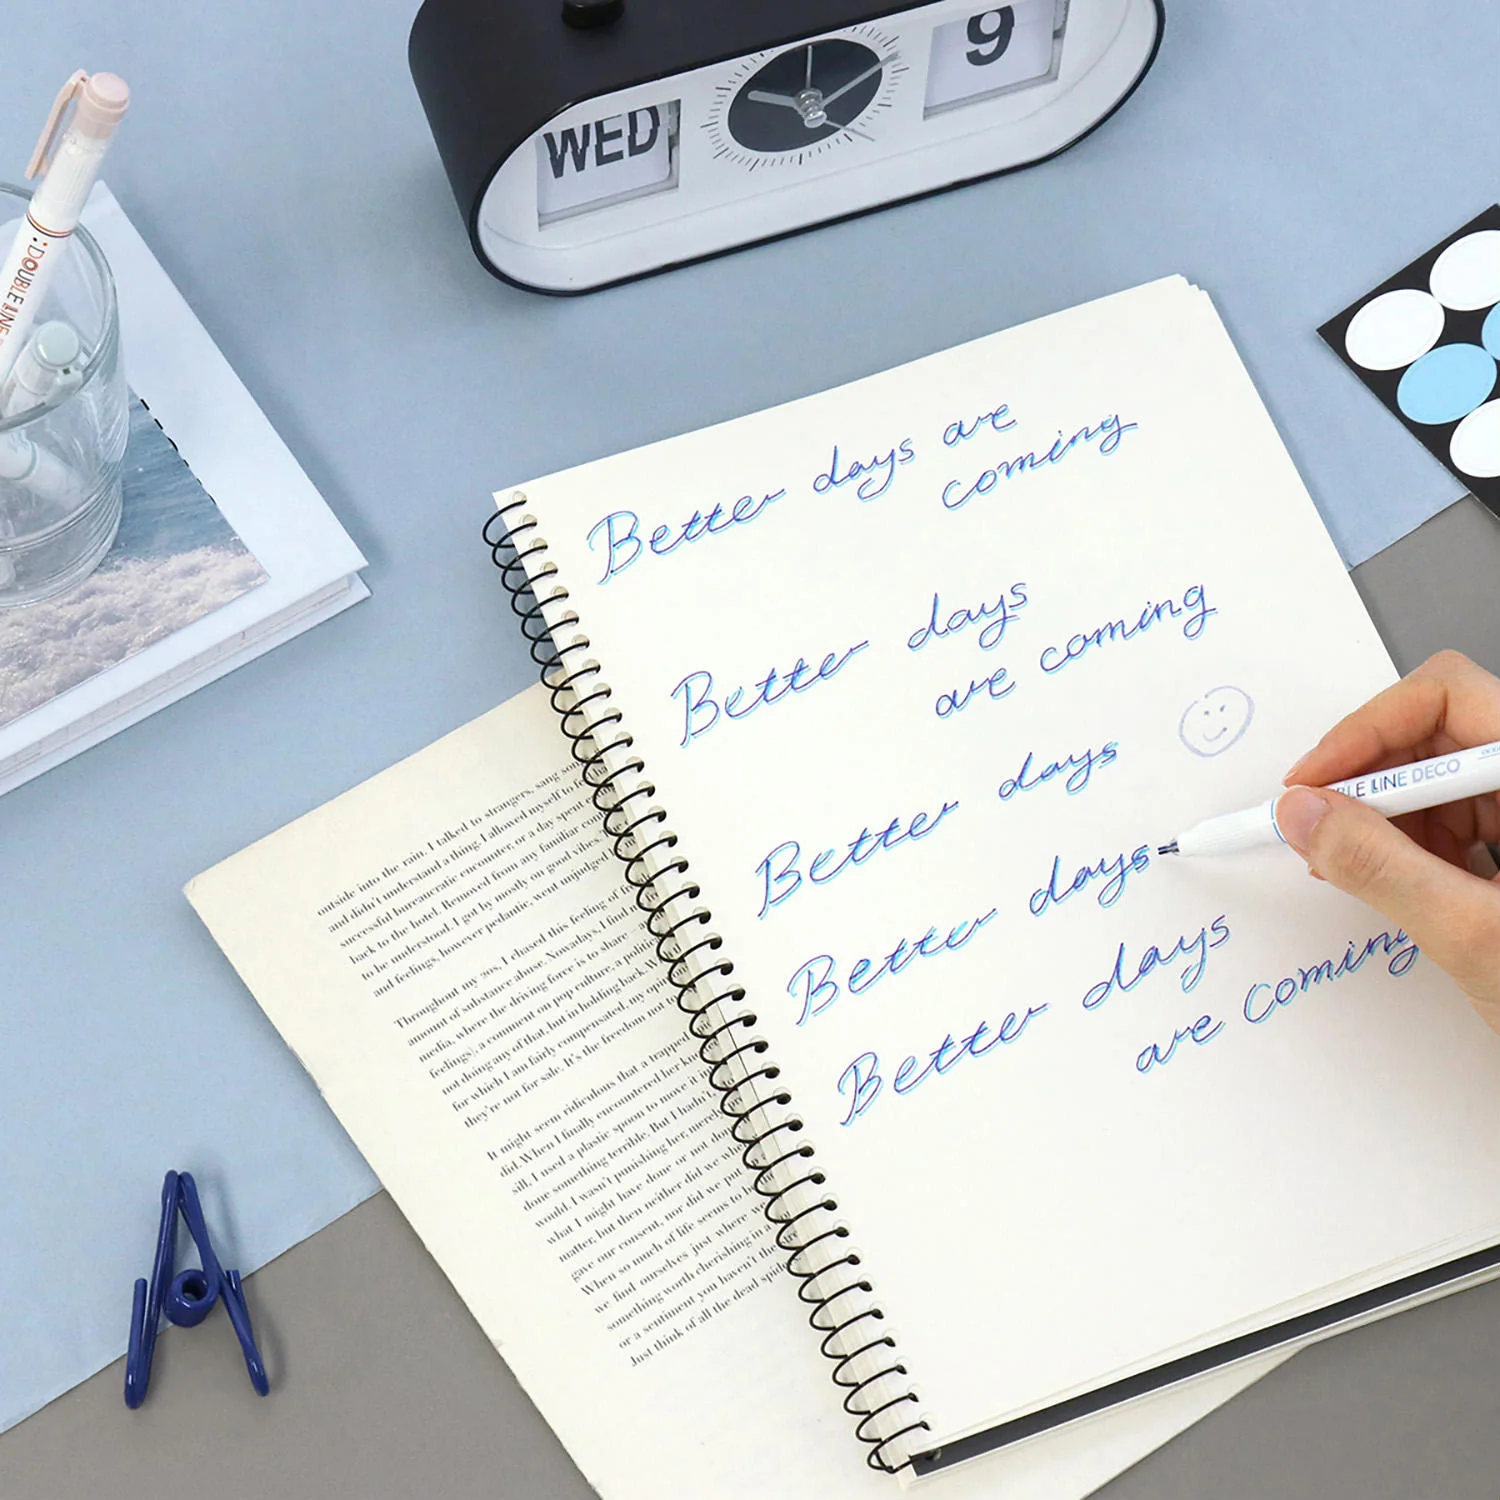 WED
9
:DOUBLE LINE
Better days are
coming
Better days
are coming
Better days
Better days
Better days
are coming
BLE LINE DECO
outside into the rain. I talked to strangers, sang
and didn't understand a thing. I allowed myself to
successful bureaucratic encounter, or a day spent
back to the hotel. Removed from any familiar
to be understood. I got by mostly on good vibes.
and feelings, however pedantic, went unjudged
Throughout my 20s, I chased this feeling of
amount of substance abuse. Nowadays, I find
media, where the driving force is to share
feelings), a comment on pop culture, a
not doing any of that, but in holding back.
for which I am fairly compensated, my
they're not for sale. It's the freedom not to
It might seem ridiculous that a trapped
did. When I finally encountered her
sill, I used a plastic spoon to move it
done something terrible. But I hadn't,
would. I wasn't punishing her, merely
what I might have done or not
matter, but then neither did we
gave our consent, nor did we put
When so much of life seems to
we find ourselves just where we
something worth cherishing in a
or a sentiment you haven't the
Just think of all the dead